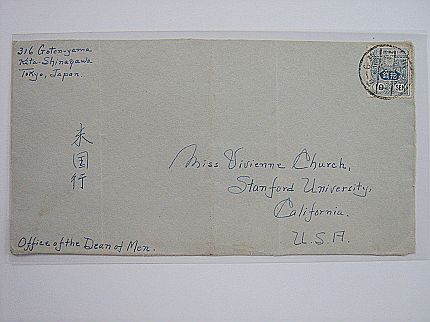 316 Gotenyama
Kita-Shinagawa
Tokyo, Japan.
米国行
Miss Vivienne Church,
Stanford University,
California.
U.S.A.
Office of the Dean of Men.